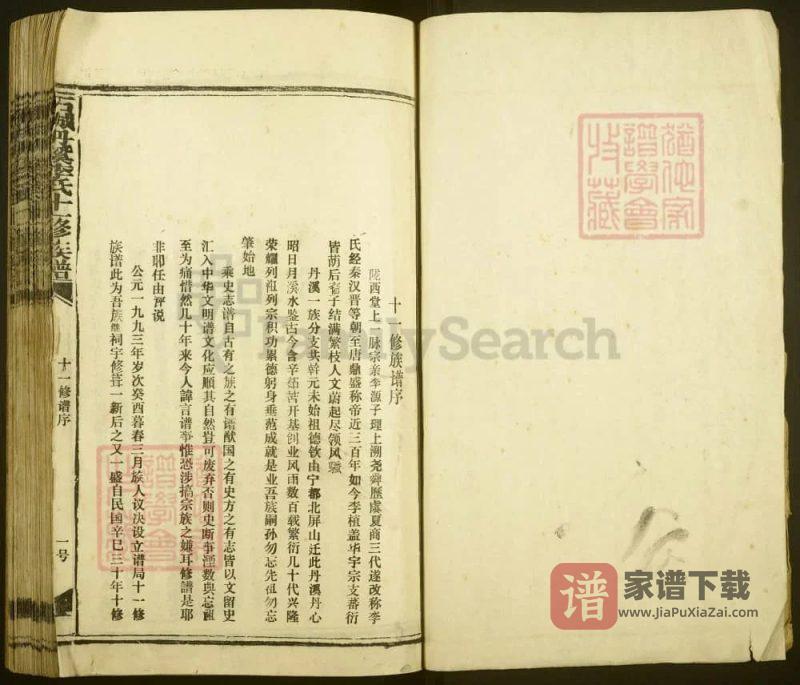 十一修族谱序
陇西堂上一脉宗亲李源子理上溯尧舜历虞夏商三代遂改称李
氏经秦汉晋等朝至唐鼎盛称帝近三百年如今李植盖华宇宗支蕃衍
皆葫后裔子结满繁枝人文蔚起尽领风骚
丹溪一族分支共干元末始祖德钦由宁都北屏山迁此丹溪丹心
昭日月溪水鉴古今含辛茹苦开基创业风雨数百载繁衍几十代兴隆
荣耀列祖列宗积功累德躬身垂范成就是业吾族嗣孙勿忘先祖勿忘
肇始地
乘史志谱自古有之族之有谱猷国之有史方之有志皆以文留史
汇入中华文明谱文化应顺其自然岂可废弃否则史断事湮数典忘祖
至为痛惜然几十年来今人讳言谱事惟恐涉搞宗族之嫌耳修谱是耶
非耶任由评说
公元一九九三年岁次癸酉暮春三月族人议决设立谱局十一修
族谱此为吾族继祠宇修葺一新后之又一盛自民国辛巳三十年十修
氏十一修族谱
十一修谱序
一号
谱学会
FamilySearch
谱学会
收藏
谱
家谱下载
www.JiaPuXiaZai.com